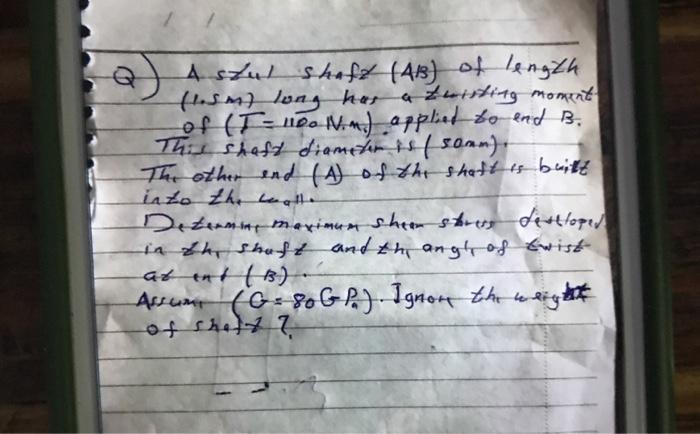 Q) A steel shaft (AB) of length
(1.5m) long has a twisting moment
of (T = 1100 N.m.) applied to end B.
This shaft diameter is (50mm).
The other end (A) of the shaft is built
into the wall.
Determine maximum shear stress developed
in the shaft and the angle of twist
at end (B).
Assume (G = 80 GPa). Ignore the weight
of shaft ?